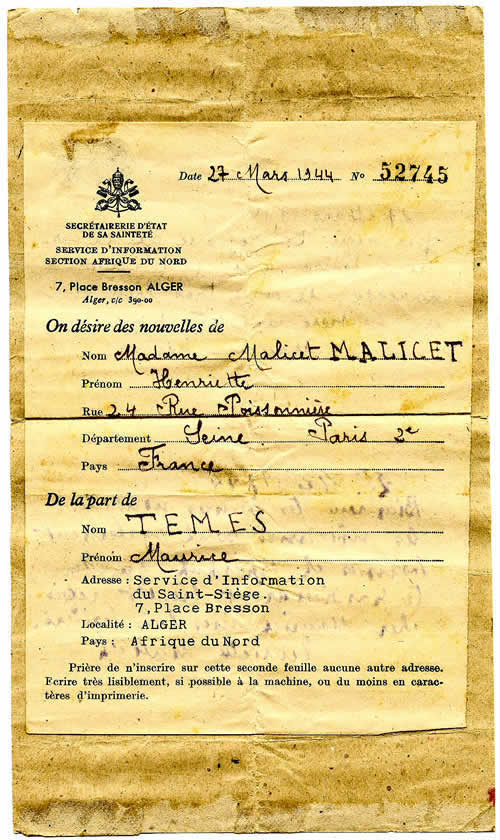 Date 27 Mars 1944 No 52745
SECRÉTAIRERIE D'ÉTAT
DE SA SAINTETÉ
SERVICE D'INFORMATION
SECTION AFRIQUE DU NORD
7, Place Bresson ALGER
Alger, c/c 390-00
On désire des nouvelles de
Nom Madame Malicet MALICET
Prénom Henriette
Rue 24 Rue Poissonnière
Département Seine Paris 2e
Pays France
De la part de
Nom TEMES
Prénom Maurice
Adresse : Service d'Information
du Saint-Siège.
7, Place Bresson
Localité : ALGER
Pays : Afrique du Nord
Prière de n'inscrire sur cette seconde feuille aucune autre adresse.
Ecrire très lisiblement, si possible à la machine, ou du moins en carac-
tères d'imprimerie.